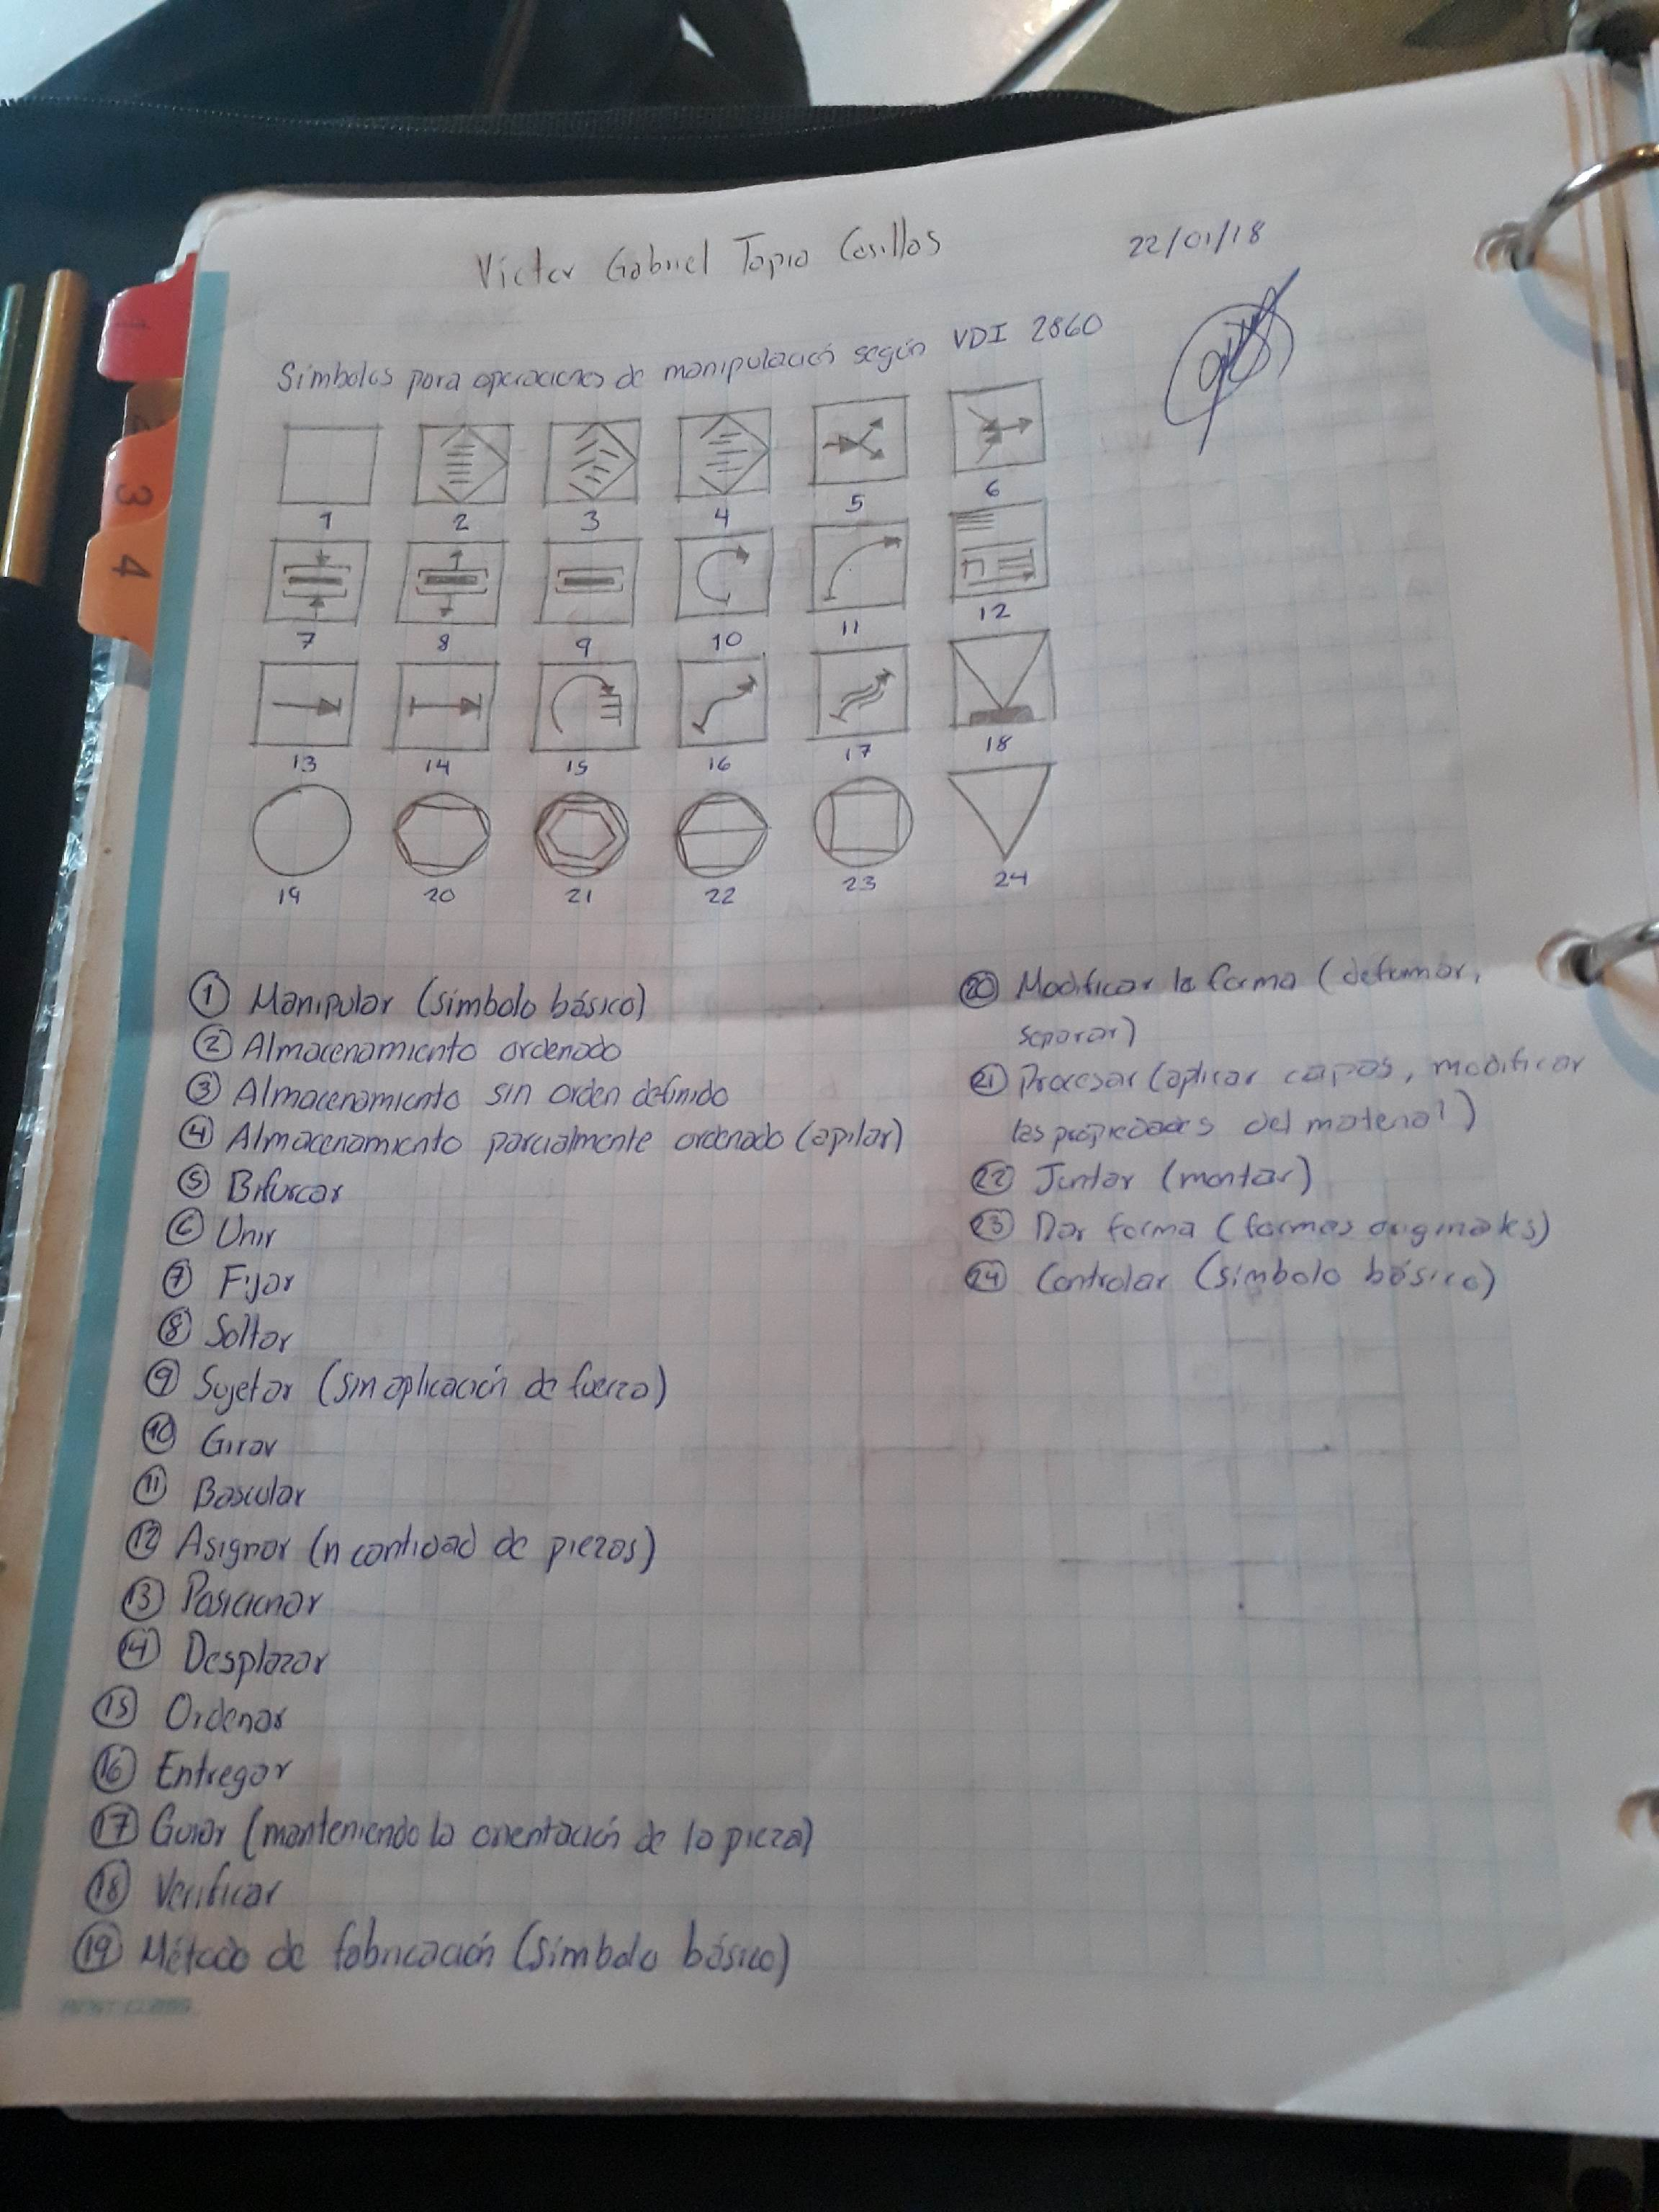 Victor Gabriel Tapia Casillas 22/01/18
Símbolos para operaciones de manipulación según VDI 2860
1 2 3 4 5 6
7 8 9 10 11 12
n
13 14 15 16 17 18
19 20 21 22 23 24
① Manipular (símbolo básico)
② Almacenamiento ordenado
③ Almacenamiento sin orden definido
④ Almacenamiento parcialmente ordenado (apilar)
⑤ Bifurcar
⑥ Unir
⑦ Fijar
⑧ Soltar
⑨ Sujetar (sin aplicación de fuerza)
⑩ Girar
⑪ Bascular
⑫ Asignar (n cantidad de piezas)
⑬ Posicionar
⑭ Desplazar
⑮ Ordenar
⑯ Entregar
⑰ Guiar (manteniendo la orientación de la pieza)
⑱ Verificar
⑲ Método de fabricación (símbolo básico)
⑳ Modificar la forma (deformar,
separar)
㉑ Procesar (aplicar capas, modificar
las propiedades del material)
㉒ Juntar (montar)
㉓ Dar forma (formas originales)
㉔ Controlar (símbolo básico)
3
4